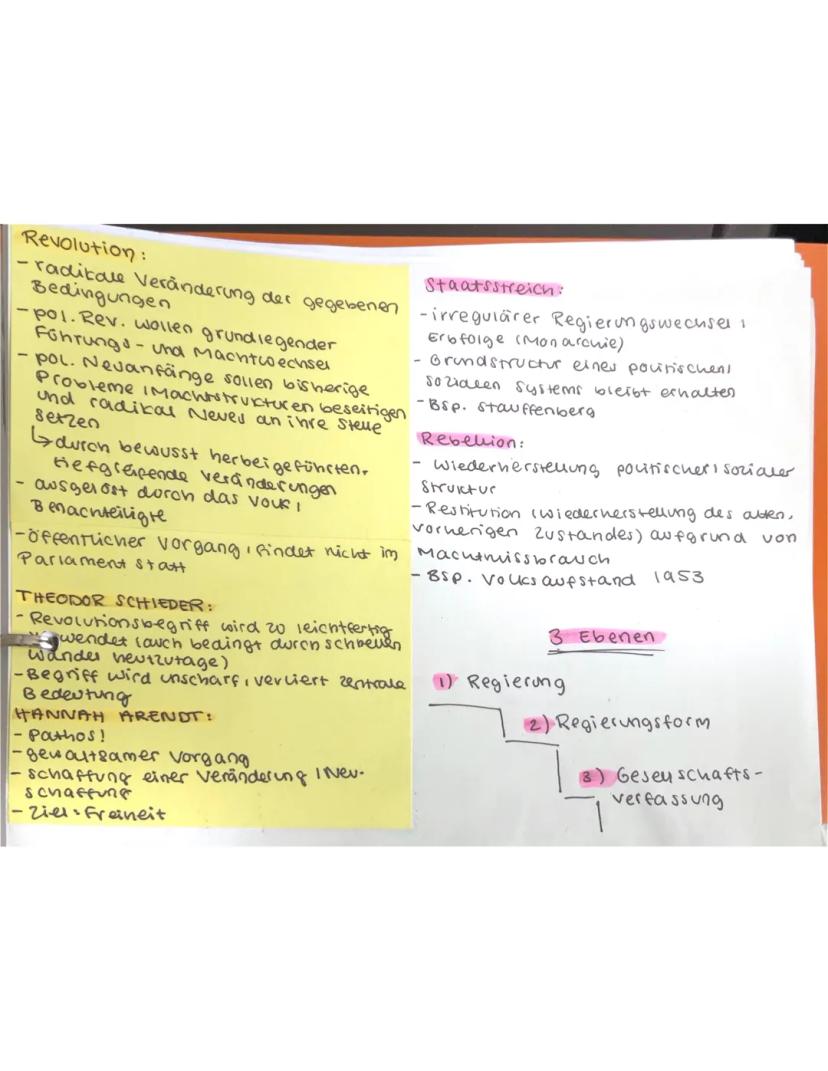 Revolution:
- radikale Veränderung der gegebenen
Bedingungen
- pol. Rev. wollen grundlegender
Führungs- und Machtwechsel
- pol. Neuanfänge sollen bisherige
Probleme / Machtstrukturen beseitigen
und radikal Neues an ihre Stelle
setzen
↳ durch bewusst herbeigeführten,
tiefgreifende Veränderungen
- ausgelöst durch das Volk /
Benachteiligte
- öffentlicher Vorgang, findet nicht im
Parlament statt
THEODOR SCHIEDER:
- Revolutionsbegriff wird zu leichtfertig
wendet (auch bedingt durch schnellen
Wandel heutzutage)
- Begriff wird unscharf, verliert zentrale
Bedeutung
HANNAH ARENDT:
- Pathos!
- gewaltsamer Vorgang
- schaffung einer Veränderung / Neu-
schaffung
- Ziel: Freiheit
Staatsstreich:
- irregulärer Regierungswechsel /
Erbfolge (Monarchie)
- Grundstructur eines politischen /
sozialen Systems bleibt erhalten
- Bsp. Stauffenberg
Rebellion:
- Wiederherstellung politischer / sozialer
Struktur
- Restitution (wiederherstellung des alten,
vorherigen Zustandes) aufgrund von
Machtmissbrauch
- Bsp. Volksaufstand 1953
3 Ebenen
1) Regierung
2) Regierungsform
3) Gesellschafts-
verfassung